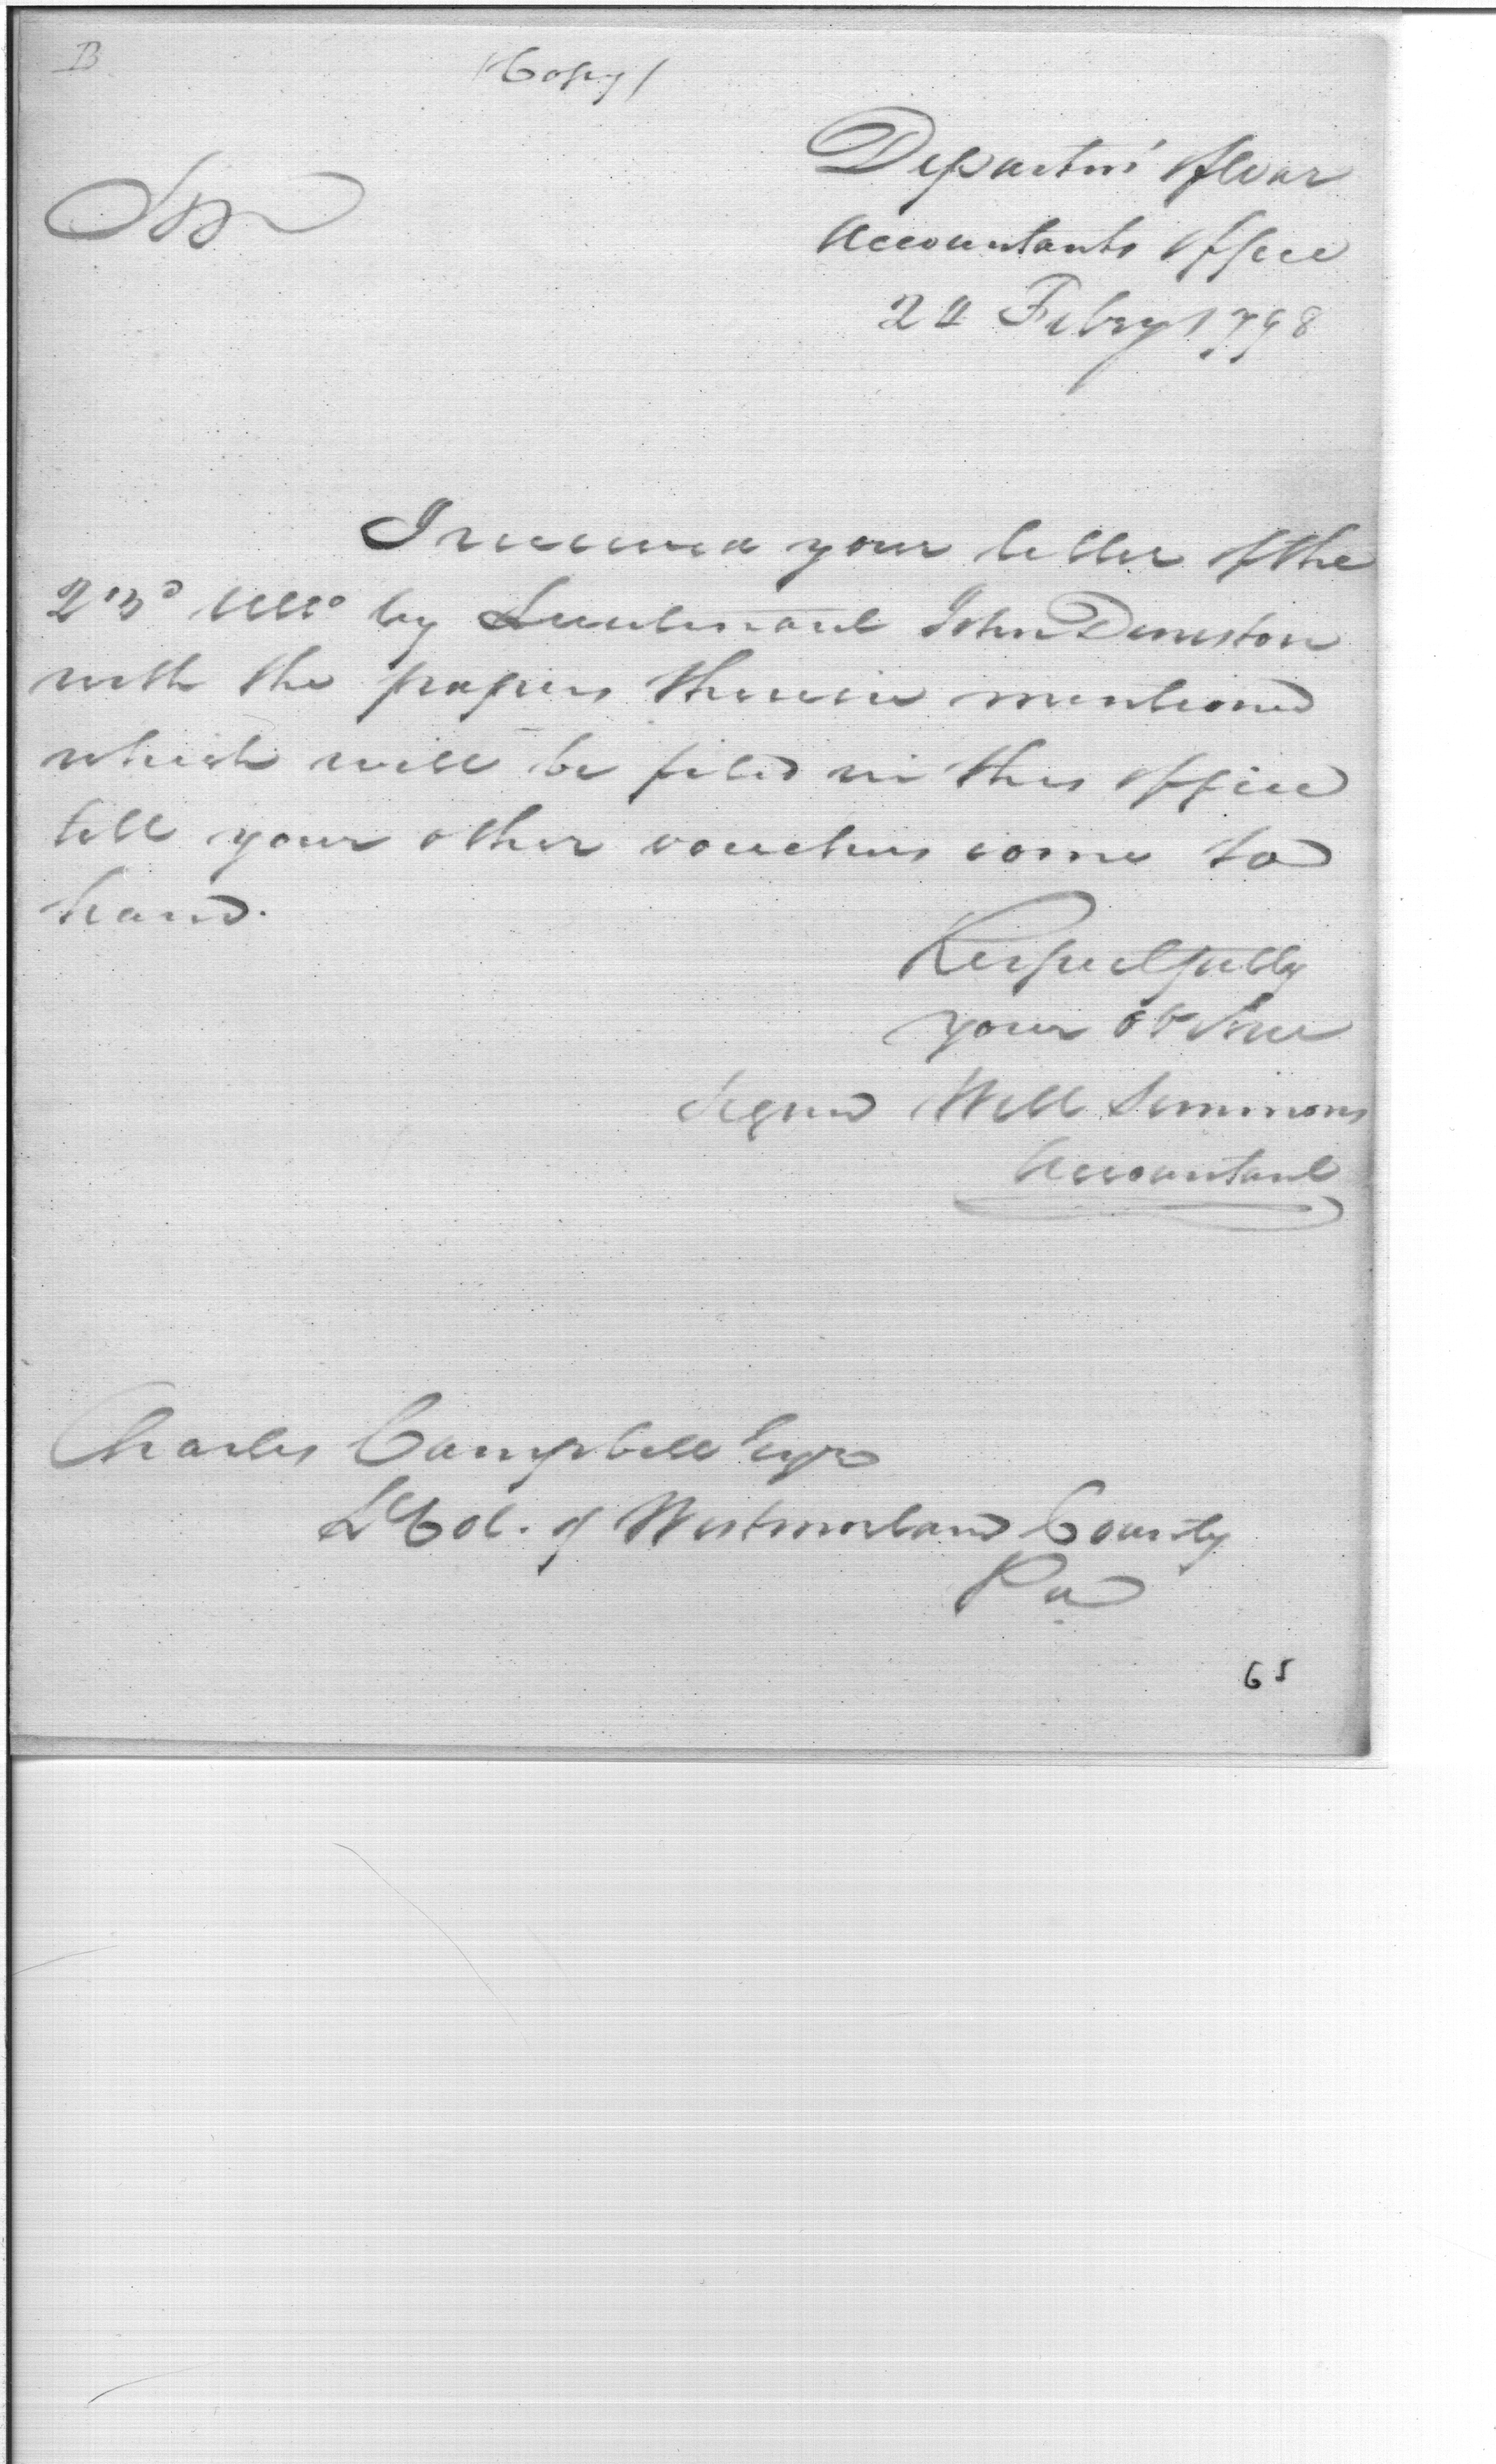 B
(Copy)
Departmt of War
Accountants Office
Sir
Febry 1798
I received your letter of the
23d Ullo by Lieutenant John Denniston
with the papers therein mentioned
which will be filed in this office
till your other vouchers come to
hand.
Respectfully
your ob Serve
Signed Will Simmons
Accountant
Charles Campbell Esqr
Lt Col. of Westmorland County
Pa
65